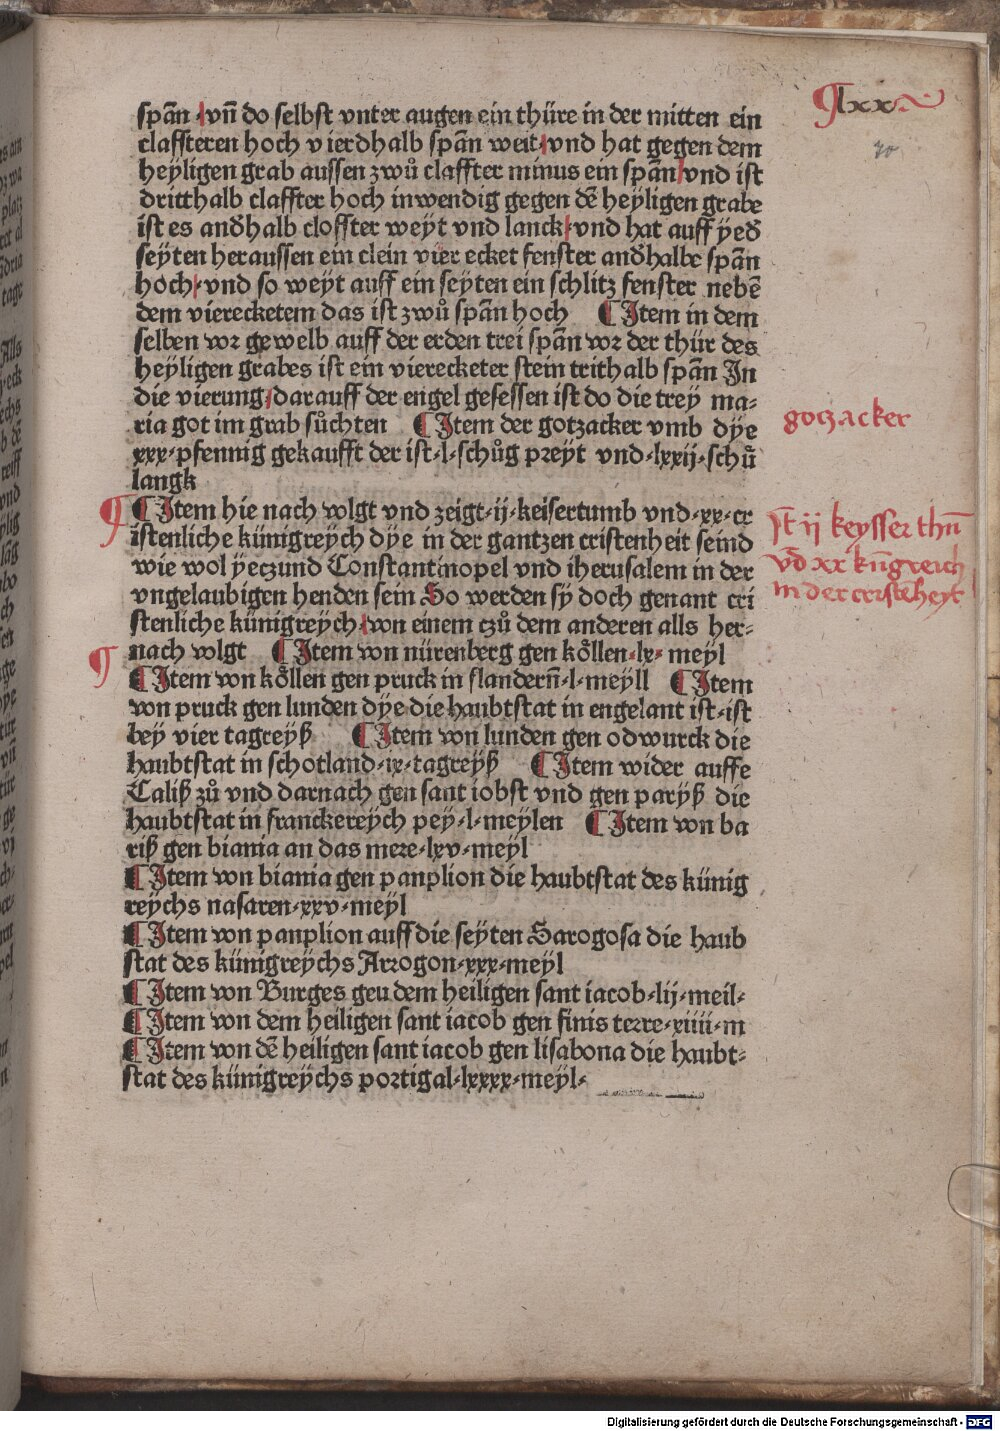 ¶lxx
70
spān ·vn̄ do selbst vnter augen ein thüre in der mitten ein
claffteren hoch vierdhalb spān weit·vnd hat gegen dem
heÿligen grab aussen zwů claffter minus ein spān·vnd ist
dritthalb claffter hoch inwendig gegen dē heÿligen grabe
ist es andhalb cloffter weÿt vnd lanck·vnd hat auff ÿed
seÿten heraussen ein clein vier ecket fenster andhalbe spān
hoch·vnd so weÿt auff ein seÿten ein schlitz fenster nebē
dem vierecketem das ist zwů spān hoch ¶Item in dem
selben vor gewelb auff der erden trei spān vor der thür des
heÿligen grabes ist ein vierecketer stein trithalb spān In
die vierung·darauff der engel gesessen ist do die treÿ ma⸗
ria got im grab sůchten ¶Item der gotzacker vmb dÿe
xxx·pfennig gekaufft der ist·l·schůg preÿt vnd·lxxij·schů
langk
gotzacker
¶Item hie nach volgt vnd zeigt·ij·keisertumb vnd·xx·cr
istenliche künigreÿch dÿe in der gantzen cristenheit seind
wie wol ÿeczund Constantinopel vnd iherusalem in der
vngelaubigen henden sein So werden sÿ doch genant cri
stenliche künigreÿch·von einem czů dem anderen alls her⸗
nach volgt ¶Item von nürenberg gen köllen·lx·meÿl
ij keysser thū
vd xx kn̄greich
in der cristēheyt
¶Item von köllen gen pruck in flandern̄·l·meÿll ¶Item
von pruck gen lunden dÿe die haubtstat in engelant ist·ist
beÿ vier tagreÿß ¶Item von lunden gen odwurck die
haubtstat in schotland·ix·tagreÿß ¶Item wider auffe
Caliß zů vnd darnach gen sant iobst vnd gen parÿß die
haubtstat in franckereÿch peÿ·l·meÿlen ¶Item von ba
riß gen biania an das mere·lxv·meÿl
¶Item von biania gen panplion die haubtstat des künig
reÿchs nafaren·xxv·meÿl
¶Item von panplion auff die seÿten Sarogosa die haub
stat des künigreÿchs Arrogon·xxx·meÿl
¶Item von Burges geu dem heiligen sant iacob·lij·meil·
¶Item von dem heiligen sant iacob gen finis terre·xiiii·m
¶Item von dē heiligen sant iacob gen lisabona die haubt⸗
stat des künigreÿchs portigal·lxxxx·meÿl·
Digitalisierung gefördert durch die Deutsche Forschungsgemeinschaft - DFG